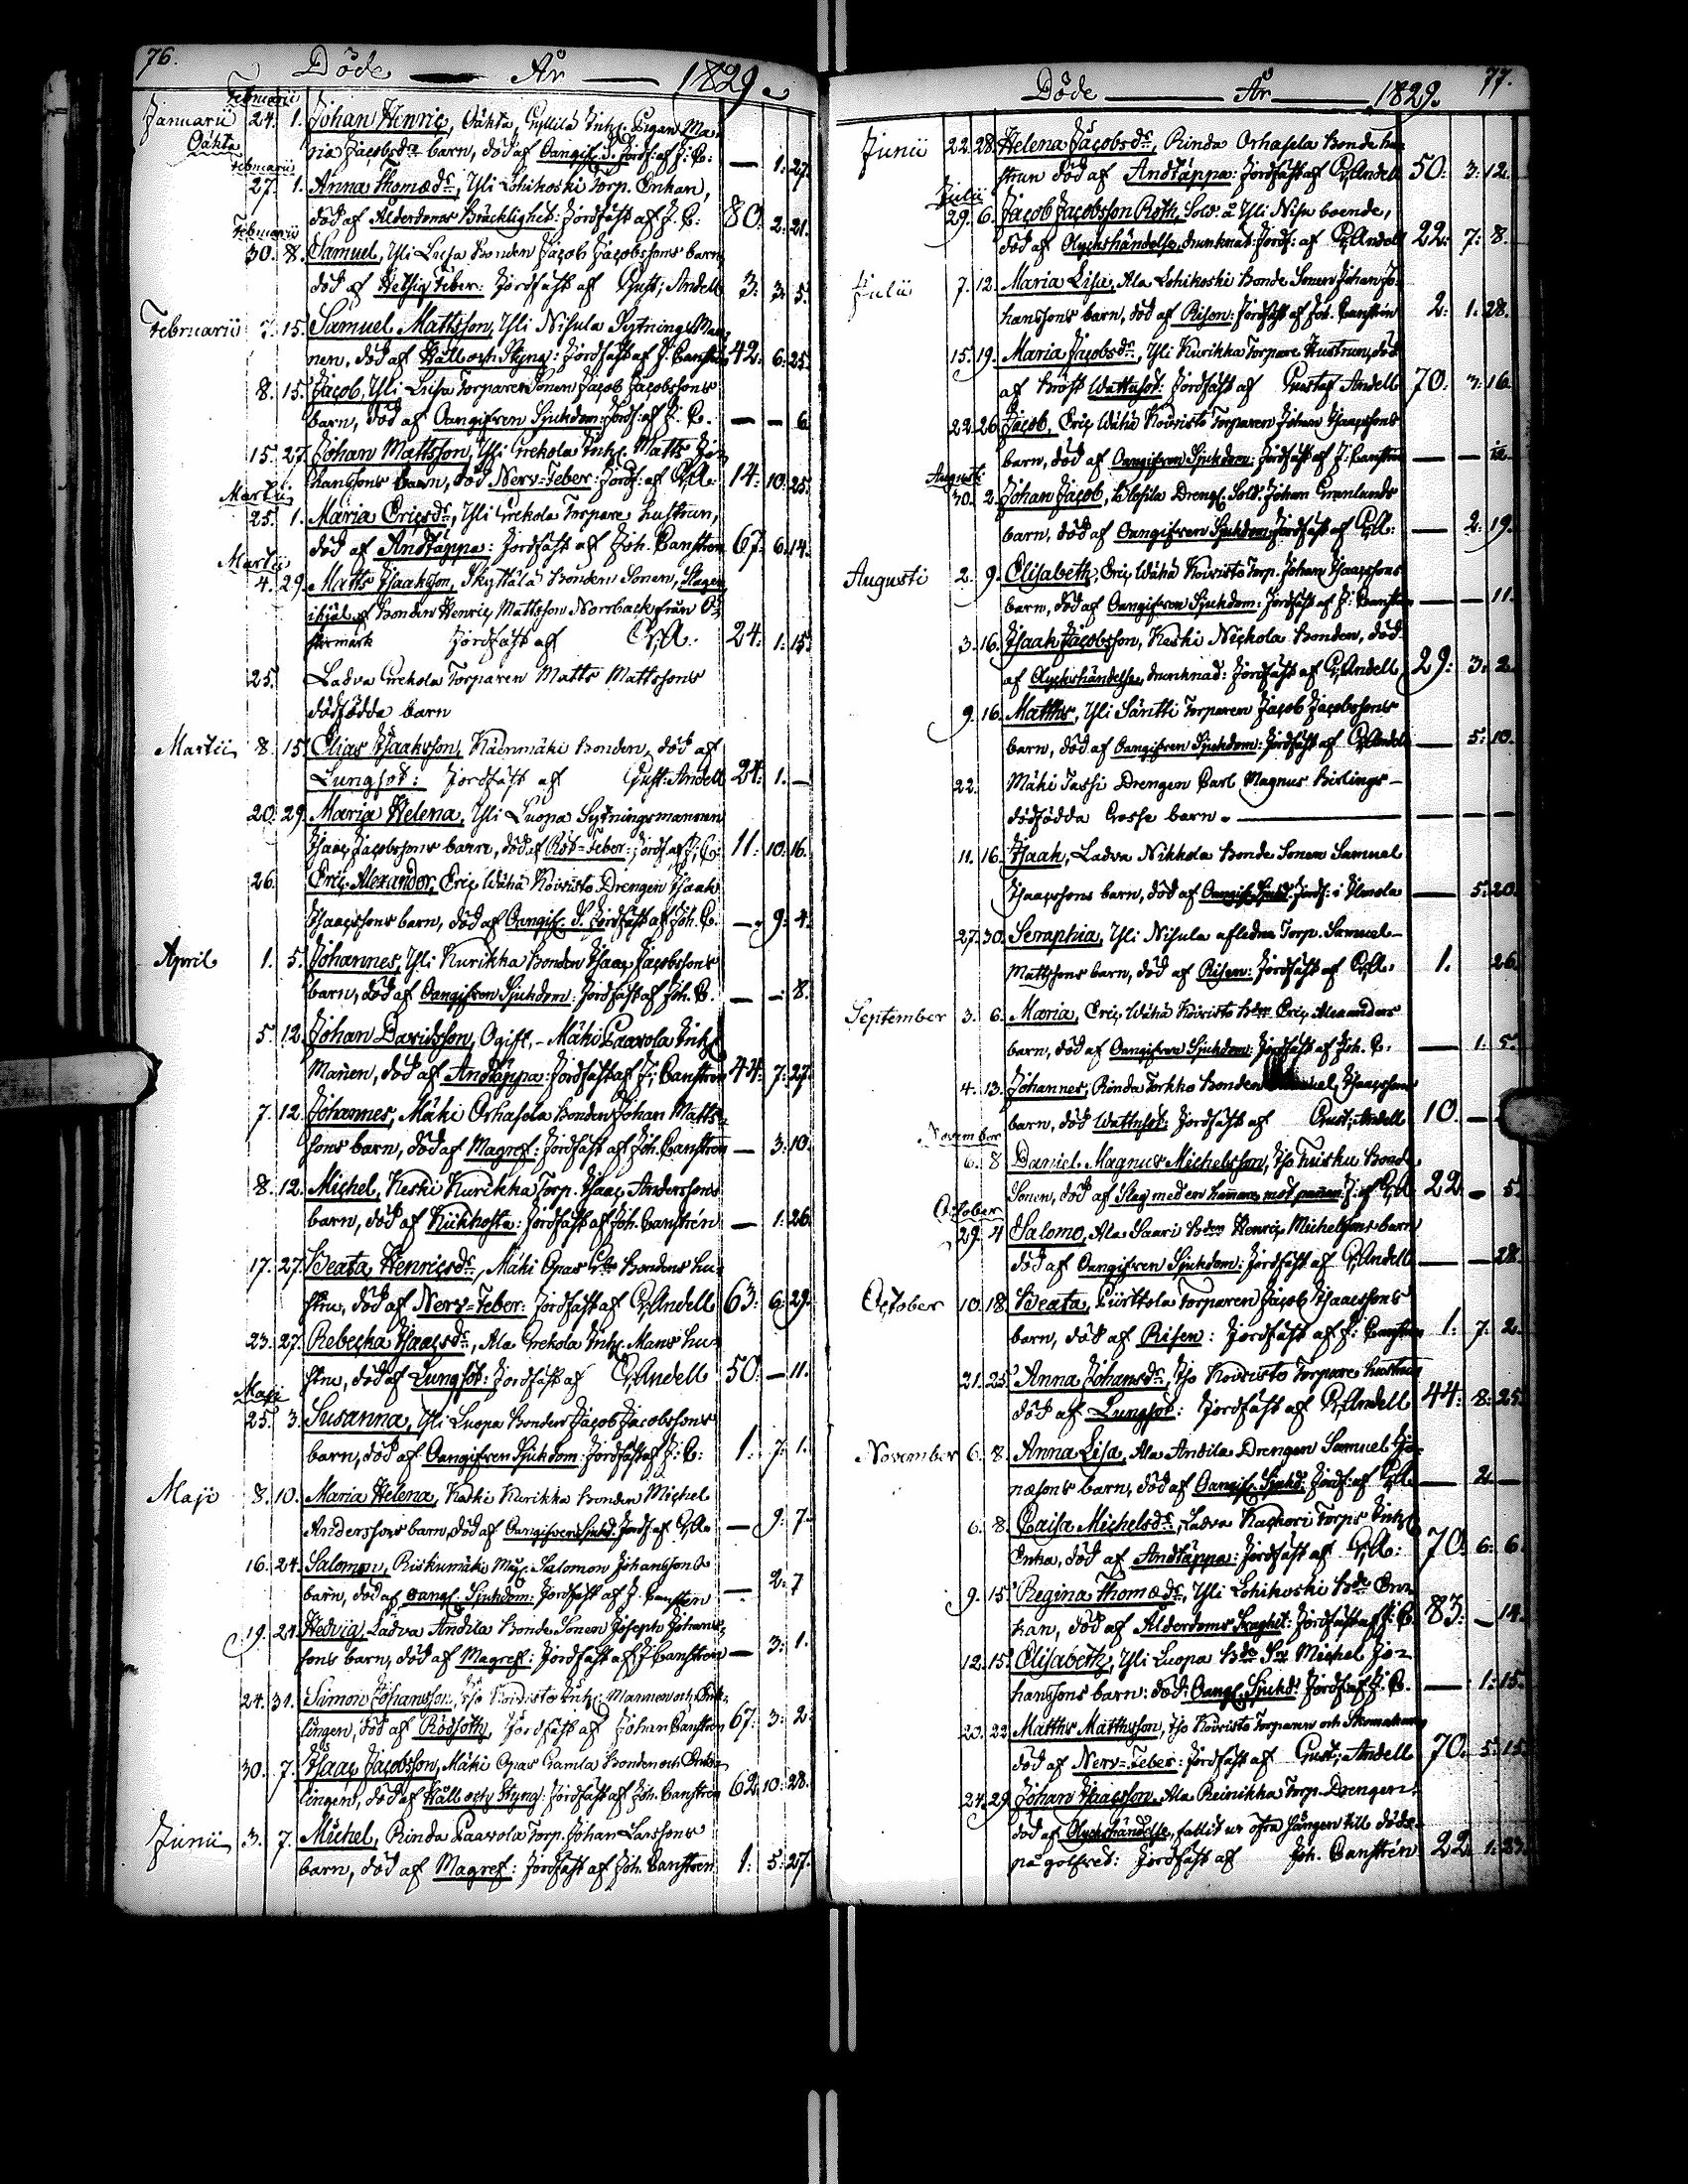 76.
Döde År 1829.
Februarii
Januarii 24. 1. Johan Henric, Oäkta, Gyllilä Inhs. Pigan Ma-
Oäkta ria Jacobsdr barn, död af Oangif. S. Jordf: af J: C: — 1: 27.
Februarii
27. 1. Anna Thomædr, Yli Lohikoski Torp. Enkan,
död af Ålderdoms Bräcklighet: Jordfäst af J. C: 80. 2: 21.
Februarii
30. 8. Samuel, Yli Luopa Bonden Jacob Jacobssons barn,
död af Hetsig Feber: Jordfäst af Gust; Andell 3: 3: 5.
Februarii 7. 15. Samuel Mattsson, Yli Nisula Sytnings Man-
nen, död af Håll och Styng: Jordfäst af J. Canstrén 42: 6: 25.
8. 15. Jacob, Yli Luopa Torparen Sonen Jacob Jacobssons
barn, död af Oangifven Sjukdom: Jordf: af J: C. — — 6
15. 27. Johan Mattsson, Yli Grekola Inhs. Matts Jo-
hanssons barn, död Nerv=Feber: Jordf: af G; A: 14: 10: 25.
Martii
25. 1. Maria Ericsdr, Yli Grekola Torpare hustrun,
död af Andtäppa: Jordfäst af Joh. Canstrén 67: 6: 14.
Martii
4. 29. Matts Isaaksson, Skyttälä Bonden Sonen, Slagen
ihjäl af Bonden Henric Mattsson Norrback från Ö-
stermark Jordfäst af G; A. 24: 1: 15.
25. Ladva Grekola Torparen Matts Mattssons
dödfödda barn
Martii 8. 15. Elias Isaaksson, Käenmäki Bonden, död af
Lungsot: Jordfäst af Gust: Andell 24: 1. —
20. 29. Maria Helena, Yli Luopa Sytningsmannen
Isaac Jacobssons barn, död af Röt=Feber: Jordf. af J; C: 11: 10: 16.
26. Eric Alexander, Eric Wähä Koivisto Drengen Isaak
Isaacssons barn, död af Oangif. S. Jordfäst af Joh. C. — 9: 4.
April 1. 5. Johannes, Yli Kurikka Bonden Isaac Jacobssons
barn, död af Oangifven Sjukdom: Jordfäst af Joh. C. — —: 8.
5. 12. Johan Davidsson, Ogift, - Mäki Paavola Inhs
Mañen, död af Andtäppa: Jordfäst af J; Canstrén 44: 7: 27.
7. 12. Johannes, Mäki Orhasola Bonden Johan Matts-
sons barn, död af Magref: Jordfäst af Joh. Canstrén — 3: 10.
8. 12. Michel, Keski Kurikka Torp. Isaac Anderssons
barn, död af Kikhosta: Jordfäst af Joh. Canstrén — 1: 26.
17. 27. Beata Henricsdr, Mäki Opas Bondens hu-
stru, död af Nerv=Feber: Jordfäst af G; Andell 63: 6: 29.
23. 27. Rebecka Isaacsdr, Ala Grekola Inhs. Mans hu-
stru, död af Lungsot: Jordfäst af G; Andell 50: — 11.
Maji
25. 3. Susanna, Yli Luopa Bonden Jacob Jacobssons
barn, död af Oangifven Sjukdom: Jordfäst af J: C: 1: 7: 1.
Maji 8. 10. Maria Helena, Keski Kurikka Bonden Michel
Anderssons barn, död af Oangifven Sjukd: Jordf. af G; A. — 9: 7.
16. 24. Salomon, Riskumäki Salomon Johanssons
barn, död af Oangf. Sjukdom: Jordfäst af J. Canstrén — 2: 7
19. 24. Hedvig, Ladva Andila Bonde Sonen Joseph Johans-
sons barn, död af Magref: Jordfäst af J Canstrén — 3: 1.
24. 31. Simon Johansson, Iso Koivisto Inhs: Mannen och Enk-
lingen, död af Rödsoth, Jordfäst af Johan Canstrén 67: 3: 2.
30. 7. Isaac Jacobsson, Mäki Opas Gamla Bonden och Enk-
lingen, död af Håll och Styng: Jordfäst af Joh. Canstrén 62. 10: 28.
Junii 3. 7. Michel, Rinda Paavola Torp. Johan Larssons
barn, död af Magref: Jordfäst af Joh. Canstrén 1: 5: 27.
77.
Döde År 1829.
Junii 22. 28. Helena Jacobsdr, Rinda Orhasola Bonde hu-
strun död af Andtäppa: Jordfäst af G; Andell 50: 3: 12.
Julii
29. 6. Jacob Jacobsson Roth, Sold. å Yli Nisu boende,
död af Olyckshändelse, drunknat: Jordf: af G; Andell 22: 7: 8.
Julii 7. 12. Maria Lisa, Ala Lohikoski Bonde Sonen Johan Jo-
hanssons barn, död af Risen: Jordfäst af Joh. Canstrén 2: 1: 28.
15. 19. Maria Jacobsdr, Yli Kurikka Torpare Hustrun, död
af Bröst Wattusot: Jordfäst af Gustaf Andell 70. 7: 16.
22. 26. Jacob, Eric Wähä Koivisto Torparen Johan Isaacssons
barn, död af Oangifven Sjukdom: Jordfäst af J: Canstrén — —
Augusti
30. 2. Johan Jacob, Drengs. Sold. Johan Grönlunds
barn, död af Oangifven Sjukdom: Jordfäst af G; A: — 2: 19.
Augusti 2. 9. Elisabeth, Eric Wähä Koivisto Torp. Johan Isaacssons
barn, död af Oangifven Sjukdom: Jordfäst af J: Canstrén — — 11.
3. 16. Isaak Jacobsson, Keski Nickola Bonden, död
af Olyckshändelse, drunknad: Jordfäst af G; Andell 29: 3: 2.
9. 16. Matths, Yli Säntti Torparen Jacob Jacobssons
barn, död af Oangifven Sjukdom: Jordfäst af G; Andell — 5: 10.
22. Mäki Jassi Drengen Carl Magnus Birlings-
dödfödda Gosse barn. — — —
11. 16. Isaak, Ladva Nikkola Bonde Sonen Samuel
Isaacssons barn, död af Oangif. Sjukd: Jordf: i Ilmola — 5: 20.
27. 30. Seraphia, Yli Nisula afledne Torp. Samuel
Mattssons barn, död af Risen: Jordfäst af G; A. 1. 26.
September 3. 6. Maria, Eric Wähä Koivisto Bden Eric Alexanders
barn, död af Oangifven Sjukdom: Jordfäst af Joh. C. — 1: 5.
4. 13. Johannes, Rinda Torkko Bonden Isaacssons
barn, död Wattusot: Jordfäst af Gust; Andell 10. —
November
6. 8 Daniel Magnus Michelsson, Iso Tuisku Bonde
Sonen, död af Slag med en hammare mot pannan: J: af G; A 22 — 5.
October
29. 4 Salomo, Ala Saari Bden Henric Michelssons barn
död af Oangifven Sjukdom: Jordfäst af G; Andell — — 28.
October 10. 18. Beata, Pirttola Torparen Jacob Isaacssons
barn, död af Risen: Jordfäst af J: Canstrén 1: 7: 2.
21. 25. Anna Johansdr, Iso Koivisto Torpare hustrun
död af Lungsot: Jordfäst af G; Andell 44: 8: 25.
November 6. 8. Anna Lisa, Ala Andila Drengen Samuel Jo-
næsons barn, död af Oangif. Sjukd: Jordf: af G; A — 2. —
6. 8. Caisa Michelsdr, Ladva Kackori Torps Inhs
Enka, död af Andtäppa: Jordfäst af G; A: 70. 6: 6.
9. 15. Regina Thomædr, Yli Lohikoski Bde En-
kan, död af Ålderdoms Svaghet: Jordfäst af J: C. 83: — 14.
12. 15. Elisabeth, Yli Luopa Bde Sn Michel Jo-
hanssons barn: död: Oangf. Sjukd: Jordf: af J. C. — 1: 15.
20. 22. Matths Matthsson, Iso Koivisto Torparen och Skomakaren
död af Nerv=Feber: Jordfäst af Gust; Andell 70. 5: 15.
24. 29. Johan Isaacsson, Ala Reinikka Torp. Drengen
död af Olyckshändelse, fallit ur öfra Sängen till döds
på golfvet: Jordfäst af Joh. Canstrén 22. 1: 23.